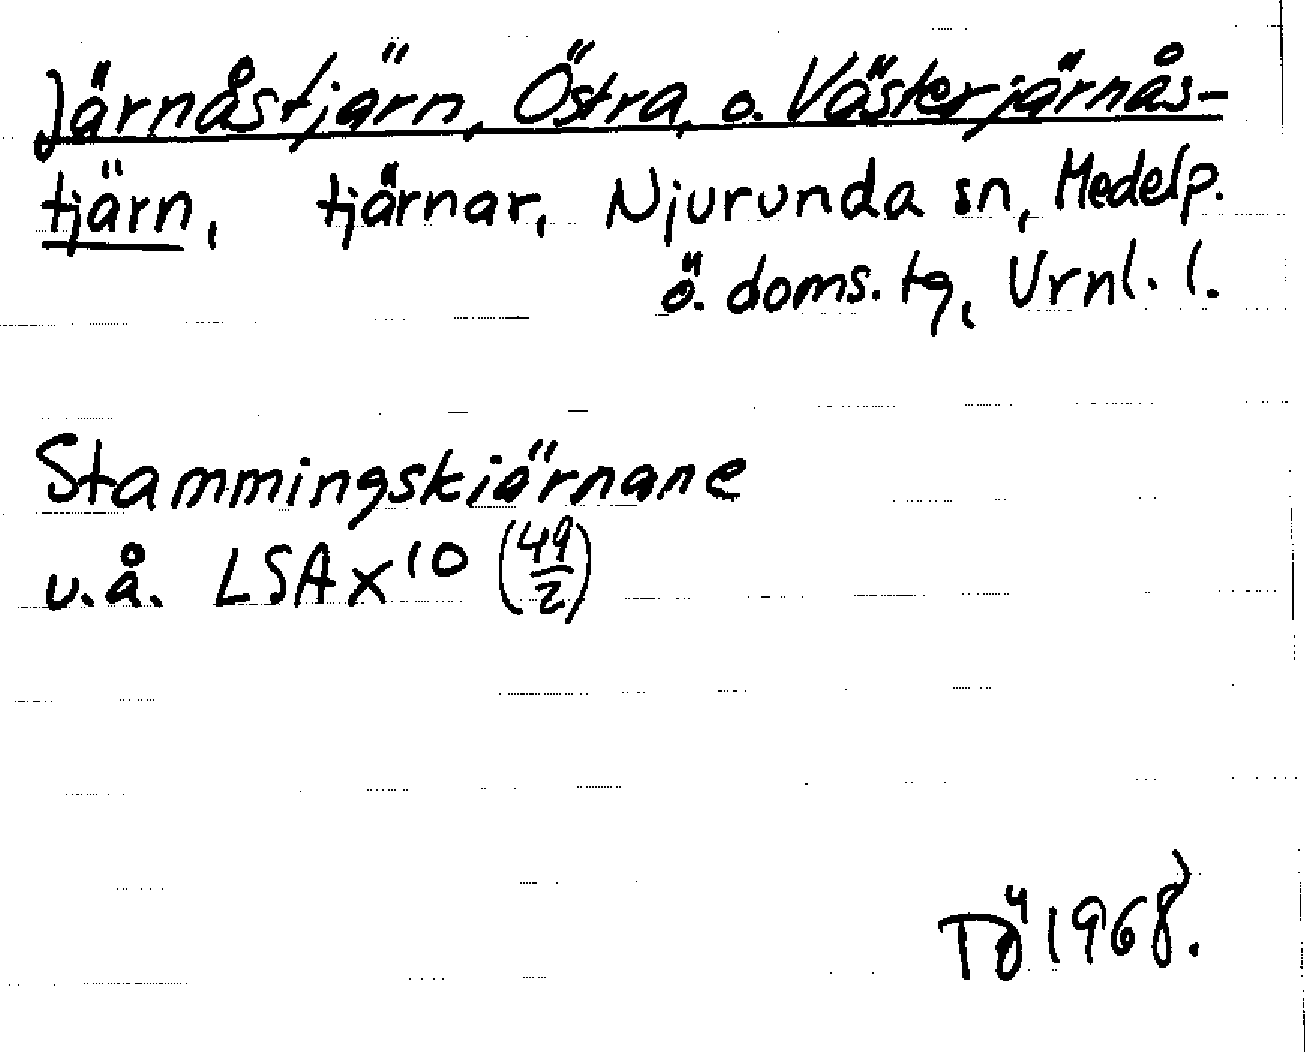 Järnåstjärn, Östra, o. Västerjärnås-
tjärn, tjärnar, Njurunda sn, Medelp.
ö. doms. tg, Vrnl. l.
Stammingskiärnane
u.å. LSA X 10 (49/2)
Tö 1968.